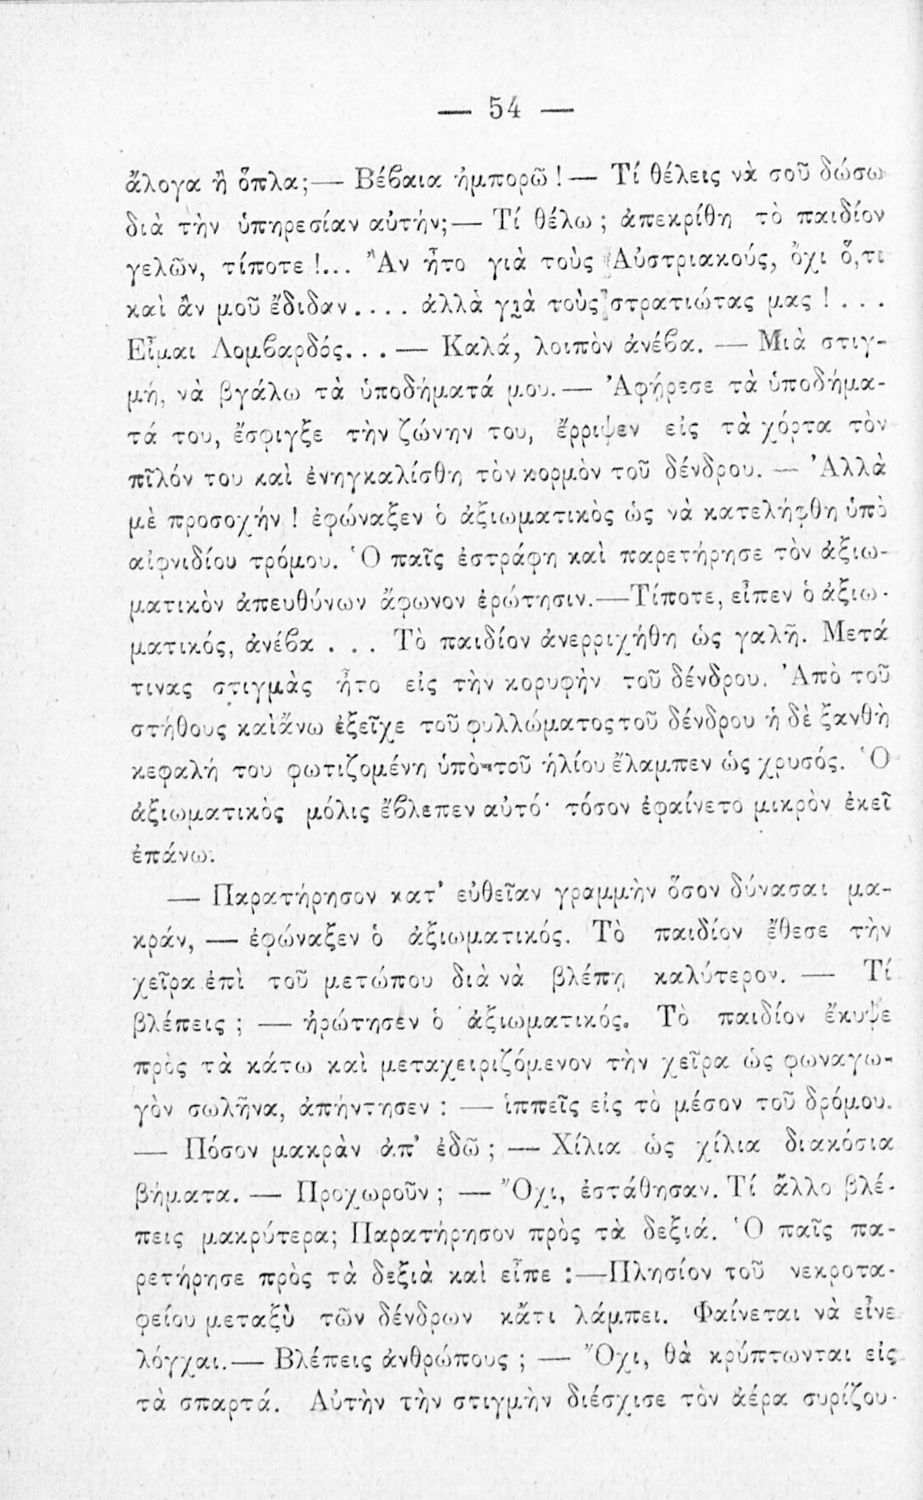 — 54 —
ἄλογα ἢ ὅπλα;— Βέβαια ἠμπορῶ!— Τί θέλεις νὰ σοῦ δώσω
διὰ τὴν ὑπηρεσίαν αὐτήν;— Τί θέλω; ἀπεκρίθη τὸ παιδίον
γελῶν, τίποτε!... Ἂν ἦτο γιὰ τοὺς Αὐστριακούς, ὄχι ὅ,τι
καὶ ἂν μοῦ ἔδιδαν.... ἀλλὰ γιὰ τοὺς στρατιώτας μας!...
Εἶμαι Λομβαρδός...— Καλά, λοιπὸν ἀνέβα. — Μιὰ στιγ-
μή, νὰ βγάλω τὰ ὑποδήματά μου.— Ἀφῄρεσε τὰ ὑποδήμα-
τά του, ἔσφιγξε τὴν ζώνην του, ἔρριψεν εἰς τὰ χόρτα τὸν
πῖλόν του καὶ ἐνηγκαλίσθη τὸν κορμὸν τοῦ δένδρου. — Ἀλλὰ
μὲ προσοχήν! ἐφώναξεν ὁ ἀξιωματικὸς ὡς νὰ κατελήφθη ὑπὸ
αἰφνιδίου τρόμου. Ὁ παῖς ἐστράφη καὶ παρετήρησε τὸν ἀξιω-
ματικὸν ἀπευθύνων ἄφωνον ἐρώτησιν.—Τίποτε, εἶπεν ὁ ἀξιω-
ματικός, ἀνέβα ... Τὸ παιδίον ἀνερριχήθη ὡς γαλῆ. Μετά
τινας στιγμὰς ἦτο εἰς τὴν κορυφὴν τοῦ δένδρου. Ἀπὸ τοῦ
στήθους καὶ ἄνω ἐξεῖχε τοῦ φυλλώματος τοῦ δένδρου ἡ δὲ ξανθὴ
κεφαλή του φωτιζομένη ὑπὸ τοῦ ἡλίου ἔλαμπεν ὡς χρυσός. Ὁ
ἀξιωματικὸς μόλις ἔβλεπεν αὐτό· τόσον ἐφαίνετο μικρὸν ἐκεῖ
ἐπάνω.
— Παρατήρησον κατ' εὐθεῖαν γραμμὴν ὅσον δύνασαι μα-
κράν, — ἐφώναξεν ὁ ἀξιωματικός. Τὸ παιδίον ἔθεσε τὴν
χεῖρα ἐπὶ τοῦ μετώπου διὰ νὰ βλέπῃ καλύτερον. — Τί
βλέπεις; — ἠρώτησεν ὁ ἀξιωματικός. Τὸ παιδίον ἔκυψε
πρὸς τὰ κάτω καὶ μεταχειριζόμενον τὴν χεῖρα ὡς φωναγω-
γὸν σωλῆνα, ἀπήντησεν: — ἱππεῖς εἰς τὸ μέσον τοῦ δρόμου.
— Πόσον μακρὰν ἀπ' ἐδῶ; — Χίλια ὡς χίλια διακόσια
βήματα. — Προχωροῦν; — Ὄχι, ἐστάθησαν. Τί ἄλλο βλέ-
πεις μακρύτερα; Παρατήρησον πρὸς τὰ δεξιά. Ὁ παῖς πα-
ρετήρησε πρὸς τὰ δεξιὰ καὶ εἶπε:—Πλησίον τοῦ νεκροτα-
φείου μεταξὺ τῶν δένδρων κἄτι λάμπει. Φαίνεται νὰ εἶνε
λόγχαι.— Βλέπεις ἀνθρώπους; — Ὄχι, θὰ κρύπτωνται εἰς
τὰ σπαρτά. Αὐτὴν τὴν στιγμὴν διέσχισε τὸν ἀέρα συρίζου-